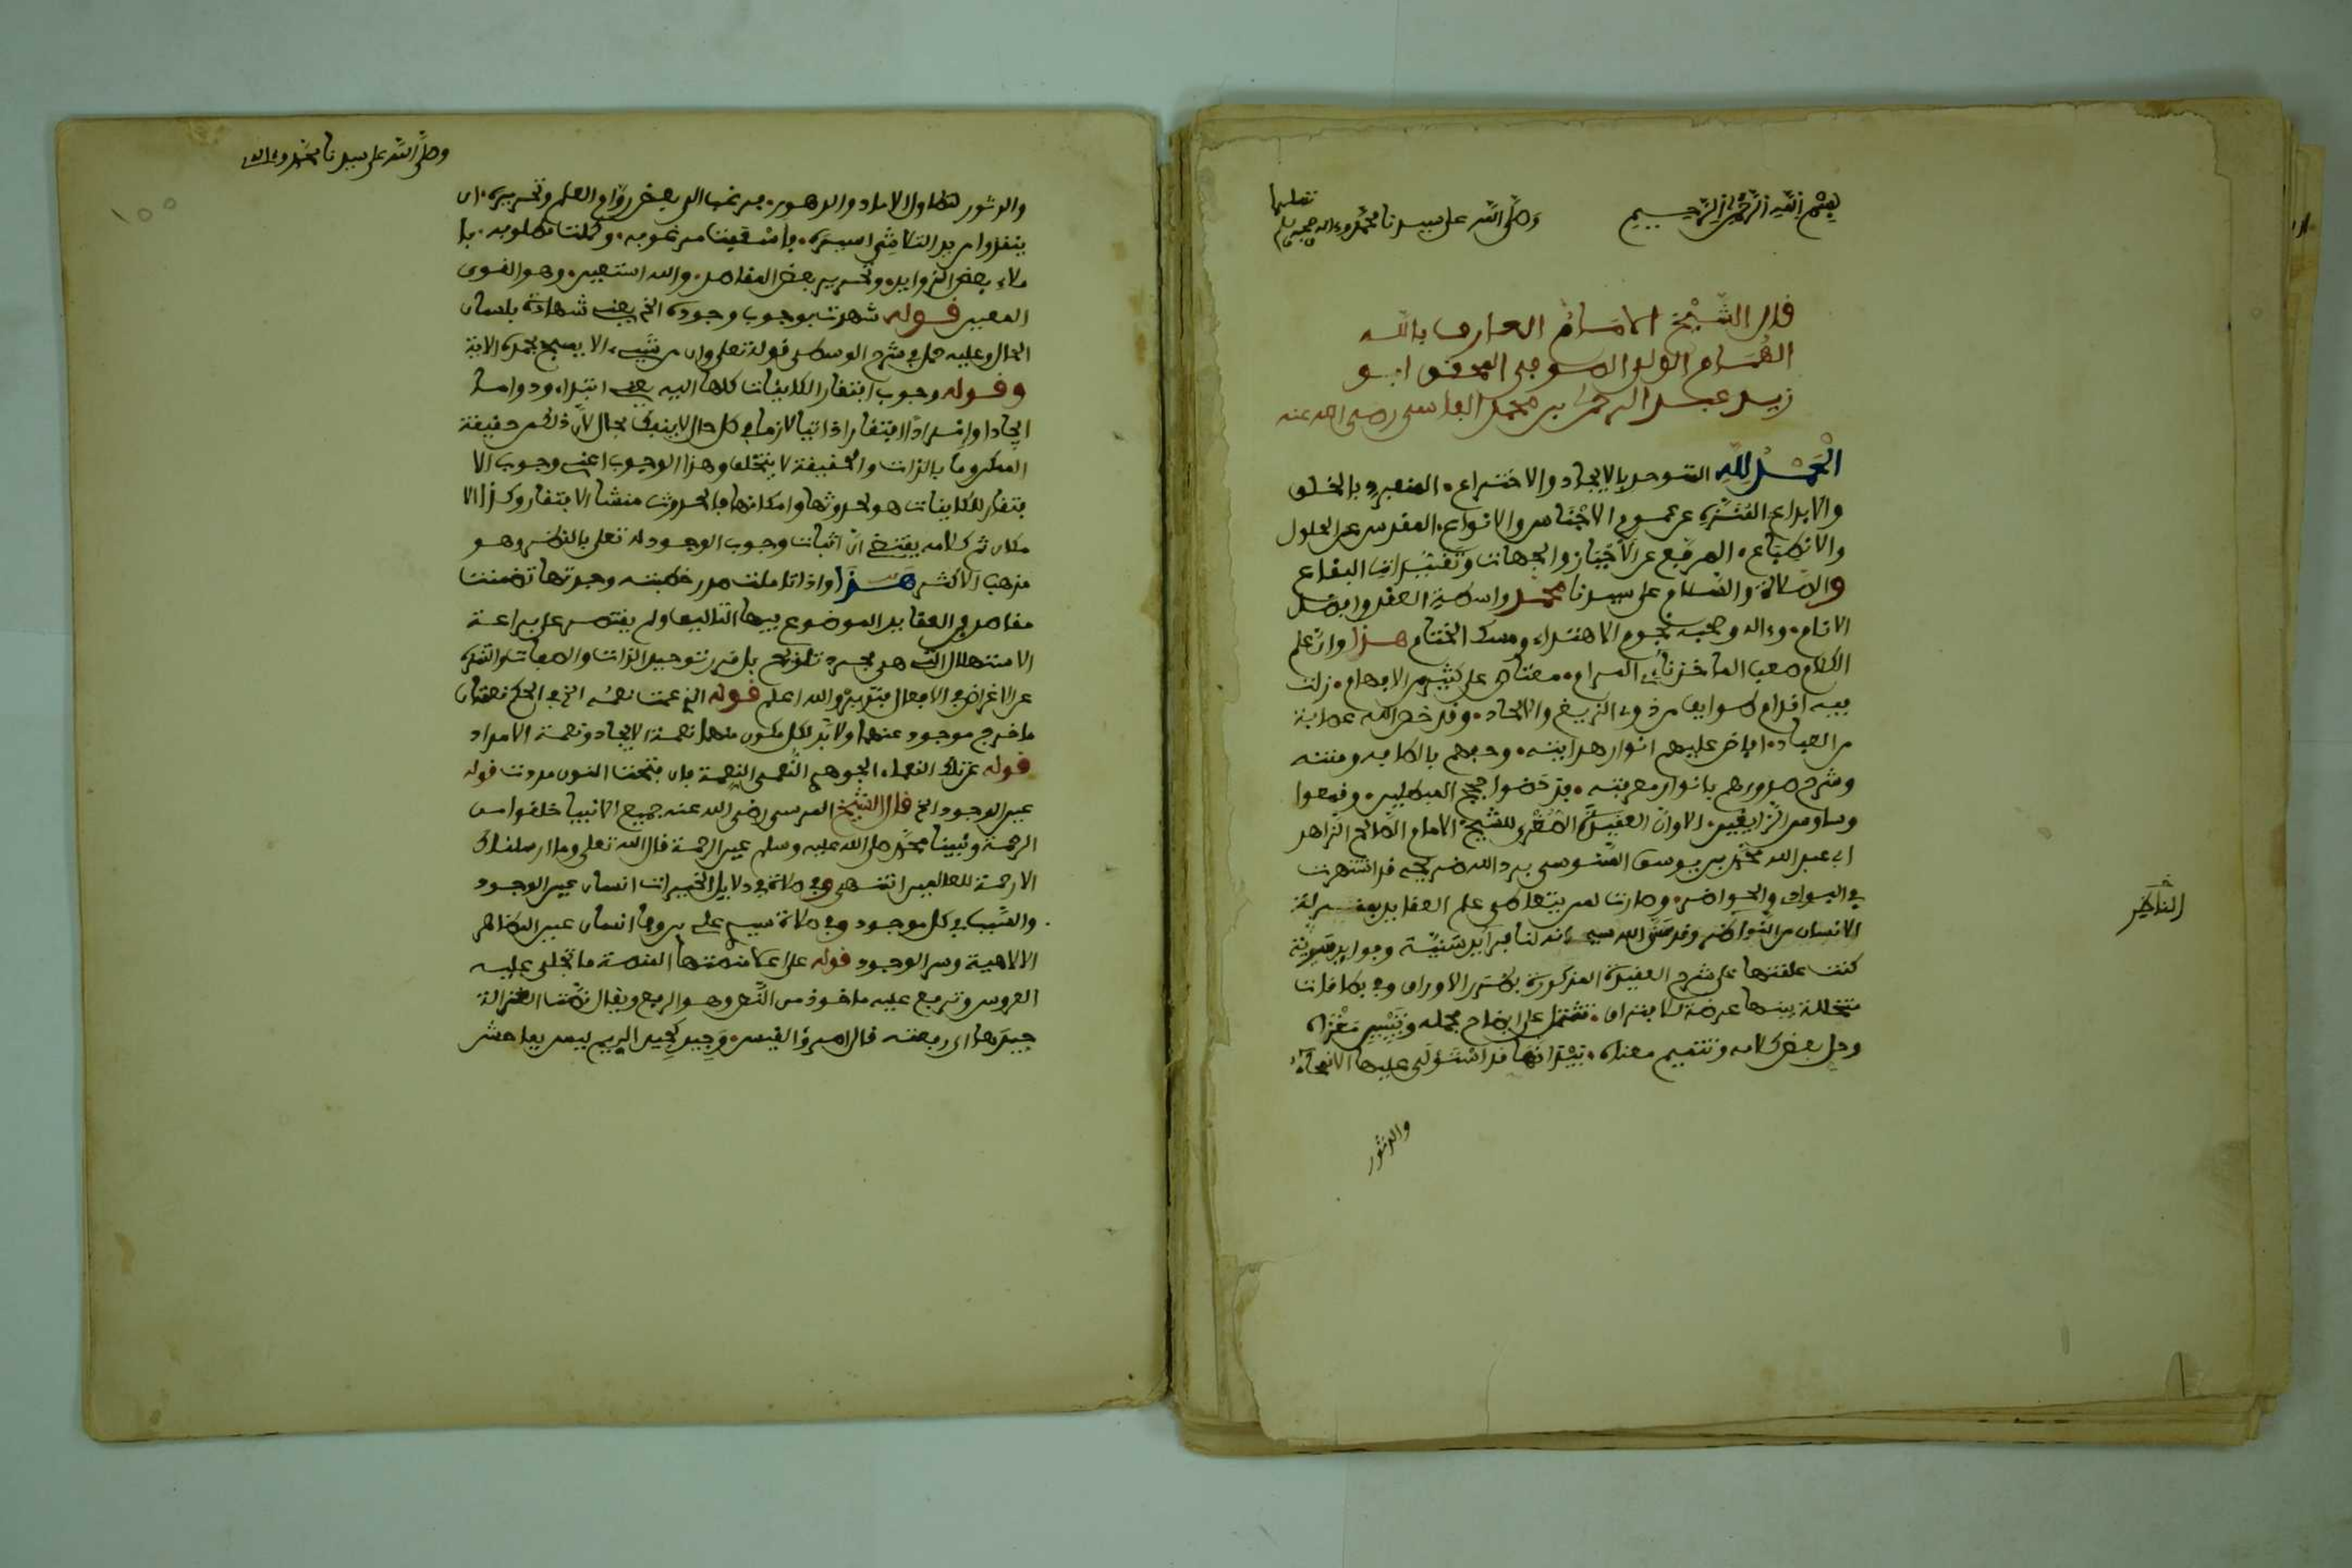 بسم الله الرحمن الرحيم
وصلى الله على سيدنا محمد وءاله وصحبه وسلم
تسليما
قال الشيخ الامام العارف بالله
الهمام الولي الصوفي المحقق ابو
زيد عبد الرحمن بن محمد الفاسي رضي الله عنه
الحمد لله المتوحد بالايجاد والاختراع. المنفرد بالخلق
والابداع المنزه عن سموم الاجناس والانواع. المقدس عن الحلول
والانطباع. المرفع عن الاحياز والجهات وتقييدات البقاع
والصلاة والسلام على سيدنا محمد واسطة العقد وافضل
الانام. وءاله وصحبه نجوم الاهتداء ومسك الختام هذا وان علم
الكلام صعب الماخذ نائي المرام. معتاص على كثير من الافهام. زلت
فيه اقدام طوايف من ذوي الزيغ والالحاد. وقد خص الله عصابة
من العباد. افاض عليهم انوار هدايته. وحبهم بالطافه ومنته
وشرح صدورهم بانوار معرفته. فدحضوا حجج المبطلين. وقمعوا
وساوس الزايغين. الا وان العقيدة الصغرى للشيخ الامام الصالح الزاهد
ابي عبد الله محمد بن يوسف السنوسي برد الله ضريحه قد اشتهرت
في البوادي والحواضر. وصارت لمن يتعاطى علم العقايد بمنزلة
الانسان من النواظر وقد من الله سبحانه لنا بفرايد سنية وفوايد
الناظر
كنت علقتها على شرح العقيدة المذكورة بطرر الاوراق وفي بطاقات
متخللة بينها عرضة للافتراق. تشتمل على ايضاح مجمله وتبيين مغزاه
وحل بعض كلامه وتتميم معناه. بيد انها قد استولى عليها الانمحاء
والدثور
وصلى الله على سيدنا محمد وءاله
والدثور لتطاول الاماد والدهور. فرغب الي بعض رواد العلم وتحريره. ان
ينقذوا من يد التلاشي اسيره. فاسعفت مرغوبه. وكملت مطلوبه. با
ملاء بعض الزوايد. وتحرير بعض المقاصد. والله استعين. وهو القوي
المعين قوله شهدت بوجوب وجوده الخ يعني شهادة بلسان
الحال وعليه حمل في شرح الوسطى قوله تعلى وان من شيء الا يسبح بحمده الاية
وقوله وجوب افتقار الكاينات كلها اليه يعني ابتداء ودواما
ايجادا وامدادا افتقارا ذاتيا لازما في كل حال لا ينفك بحال لان ذلك من حقيقة
الممكن وما بالذات والحقيقة لا يتخلف وهذا الوجوب اعني وجوب الا
فتقار للكاينات هو لحدوثها وامكانها فالحدوث منشا الافتقار وكذا الا
مكان ثم كلامه يقتضي ان اثبات وجوب الوجود له تعلى بالنظر وهو
مذهب الاكثر هذا واذا تاملت صدر خطبته وجدتها تضمنت
مقاصد في العقايد الموضوع فيها التاليف ولم يقتصر على براعة
الاستهلال التي هي مجرد تلويح بل قرر توحيد الذات والصفات والتنزه
عن الاغراض في الافعال فتدبره والله اعلم قوله الذي عمت نعمه الخ في الحكم نعمتان
ما خرج موجود عنهما ولا بد لكل مكون منهما نعمة الايجاد ونعمة الامداد
قوله عزتك النعماء. الجوهري النعمى النعمة فان فتحت النون مددت قوله
عين الوجود الخ قال الشيخ المرسي رضي الله عنه جميع الانبيا خلقوا من
الرحمة ونبينا محمد صلى الله عليه وسلم عين الرحمة قال الله تعلى وما ارسلناك
الا رحمة للعالمين انتهى وفي صلاة في دلايل الخيرات انسان عين الوجود
والسبب في كل موجود وفي صلاة سيدي علي بن وفا انسان عين المظاهر
الالاهية وسر الوجود قوله على منصتها المنصة ما تجلى عليه
العروس وترفع عليه ماخوذ من النص وهو الرفع ويقال نصت الغزالة
جيدها اي رفعته قال امرؤ القيس. وجيد كجيد الريم ليس بفاحش